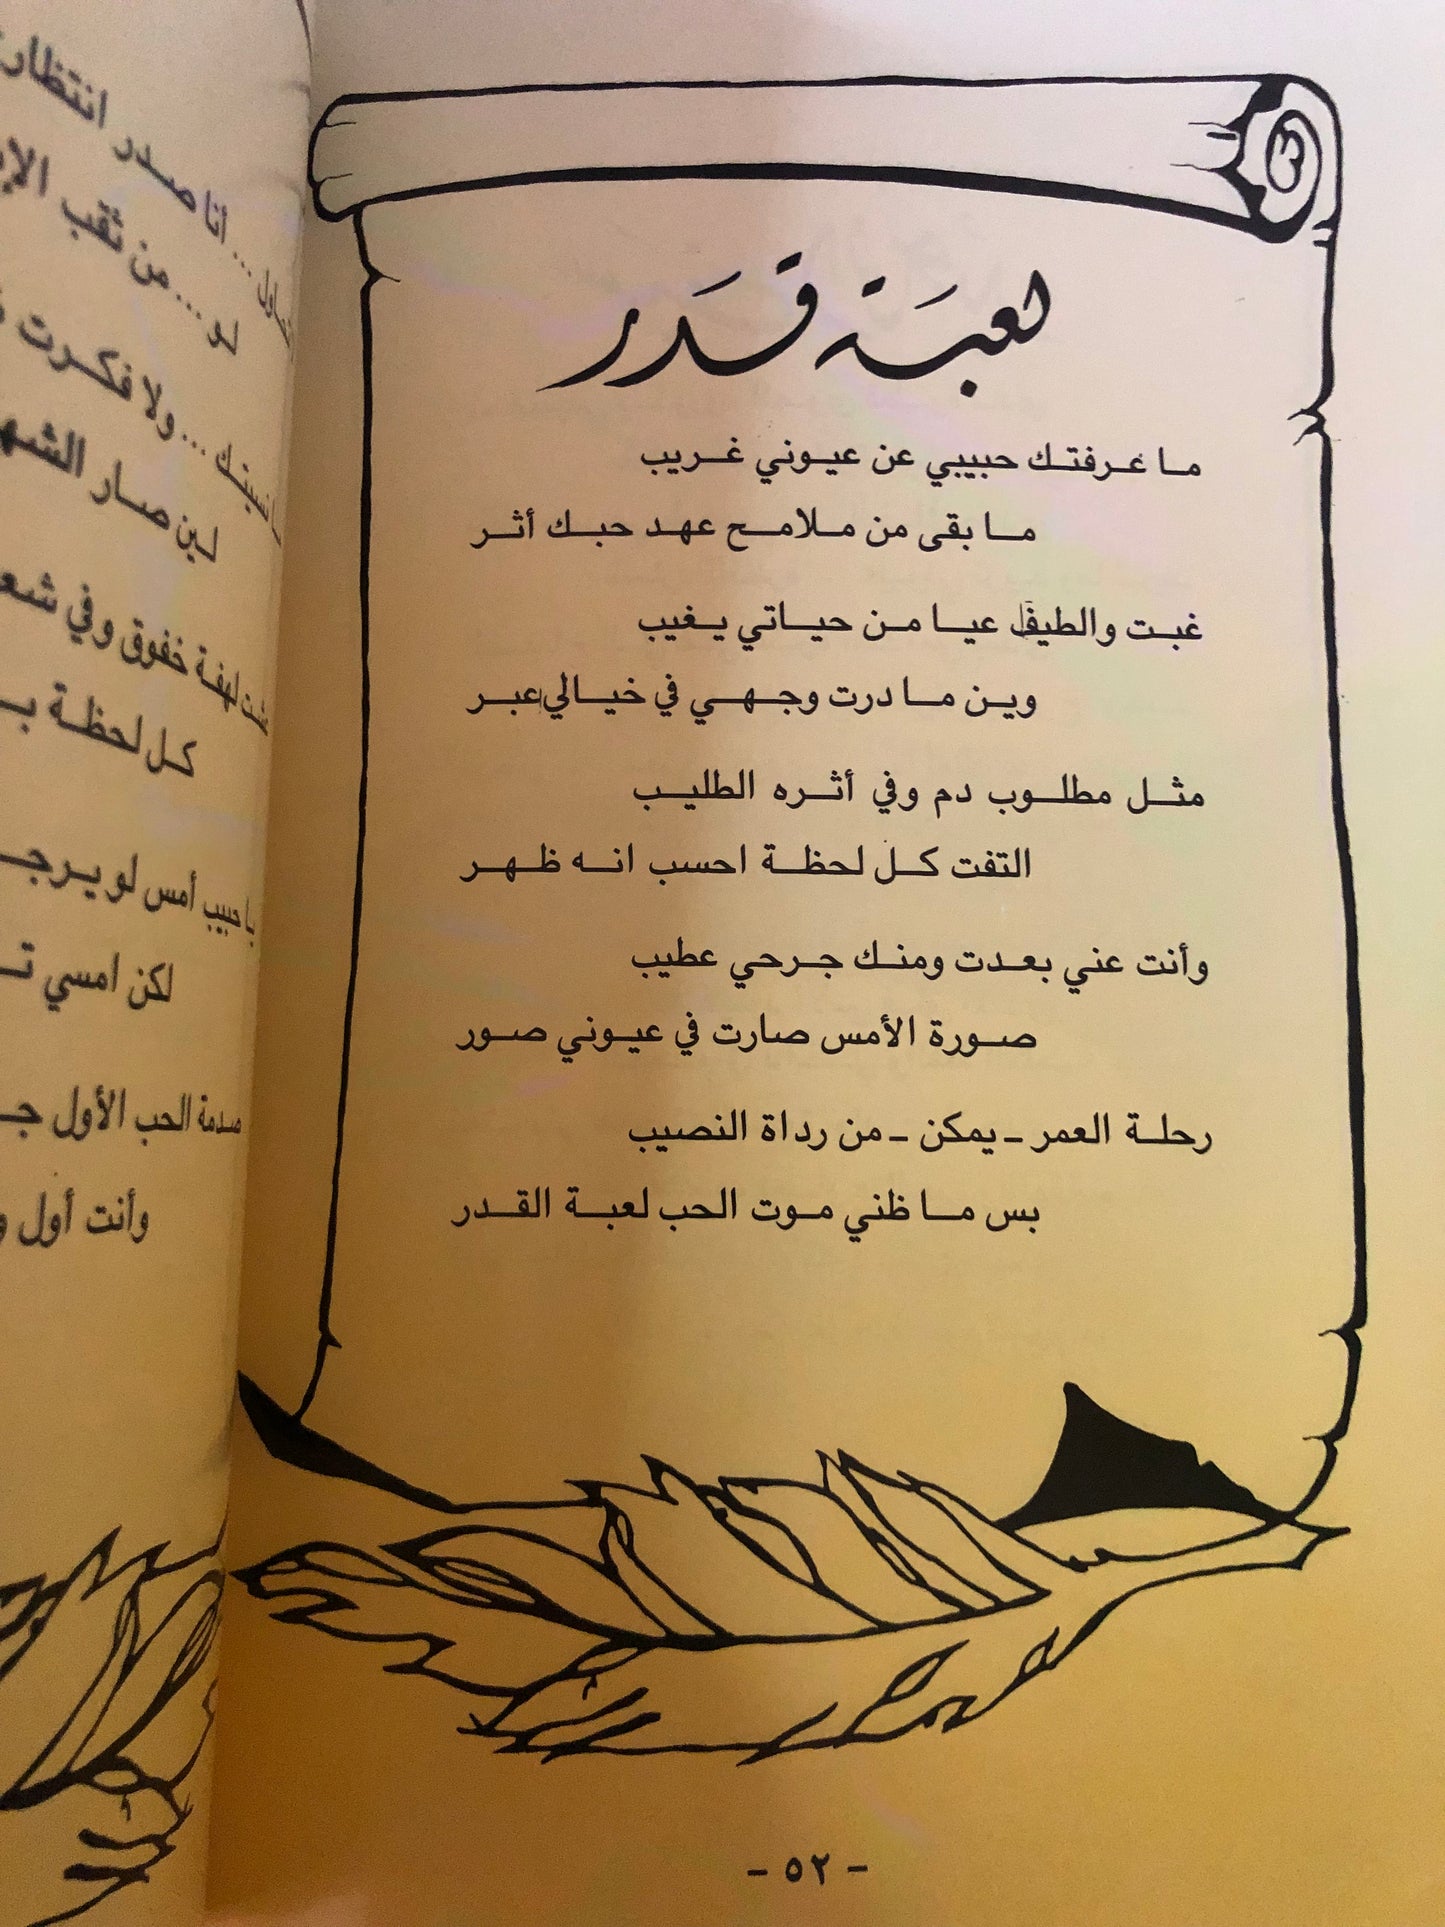 لعبَة قَدَر
ما عرفتك حبيبي عن عيوني غريب
ما بقى من ملامح عهد حبك أثر
غبت والطيف عيا من حياتي يغيب
وين ما درت وجهي في خيالي عبر
مثل مطلوب دم وفي أثره الطليب
التفت كل لحظة احسب انه ظهر
وأنت عني بعدت ومنك جرحي عطيب
صورة الأمس صارت في عيوني صور
رحلة العمر - يمكن - من رداة النصيب
بس ما ظني موت الحب لعبة القدر
- ٥٢ -
انا صدر انتظار
لو ... من ثقب
ولا فكرت
لين صار
لهفة خفوق وفي
كل لحظة
يا حبيب أمس لو
لكن امسي
صدمة الحب الأول
وأنت أول